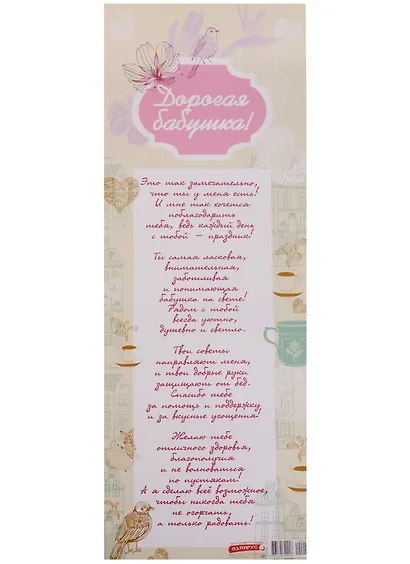 Дорогая
бабушка!
Это так замечательно,
что ты у меня есть!
И мне так хочется
поблагодарить
тебя, ведь каждый день
с тобой — праздник!
Ты самая ласковая,
внимательная,
заботливая
и понимающая
бабушка на свете!
Рядом с тобой
всегда уютно,
душевно и светло.
Твои советы
направляют меня,
и твои добрые руки
защищают от бед.
Спасибо тебе
за помощь и поддержку,
и за вкусные угощения!
Желаю тебе
отличного здоровья,
благополучия
и не волноваться
по пустякам!
А я сделаю всё возможное,
чтобы никогда тебя
не огорчать,
а только радовать!